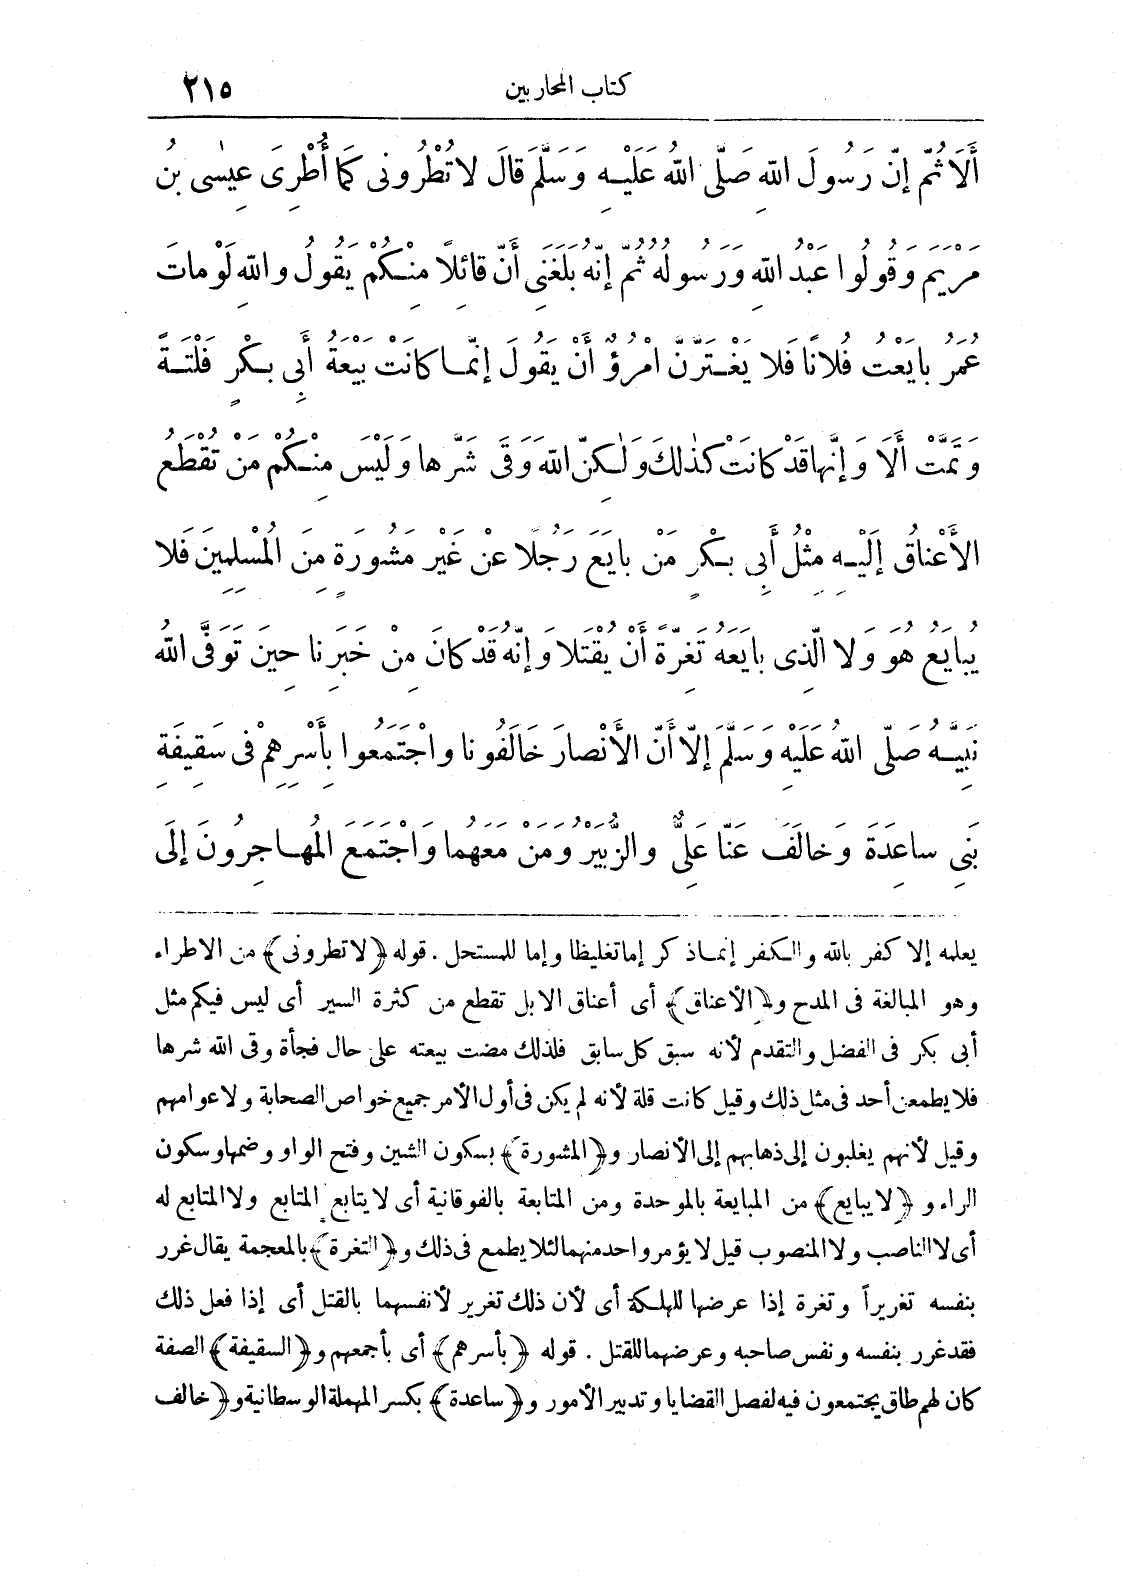 كتاب المحاربين
٢١٥
أَلَا ثُمَّ إنّ رَسُولَ اللهِ صَلَّى اللهُ عَلَيْهِ وَسَلَّمَ قالَ لا تُطْرُونى كَمَا أُطْرِىَ عِيسٰى بنُ
مَرْيَمَ وَقُولُوا عَبْدُ اللهِ وَرَسولُهُ ثُمّ إنّهُ بَلَغَنِى أَنّ قائِلاً مِنْكُمْ يَقُولُ واللهِ لَوْ ماتَ
عُمَرُ بايَعْتُ فُلانًا فَلا يَغْتَرَّنَّ امْرُؤٌ أَنْ يَقُولَ إنّما كانَتْ بَيْعَةُ أَبِى بَكْرٍ فَلْتَةً
وَتَمَّتْ أَلَا وَإِنَّها قَدْ كانَتْ كَذٰلِكَ وَلٰكِنّ اللهَ وَقَى شَرَّها وَلَيْسَ مِنْكُمْ مَنْ تُقْطَعُ
الأَعْناقُ إلَيْهِ مِثْلُ أَبِى بَكْرٍ مَنْ بايَعَ رَجُلًا عنْ غَيْرِ مَشُورَةٍ مِنَ الْمُسْلِمِينَ فَلا
يُبايَعُ هُوَ وَلا الّذِى بايَعَهُ تَغِرّةً أَنْ يُقْتَلا وَإنّهُ قَدْ كانَ مِنْ خَبَرِنا حِينَ تَوَفَّى اللهُ
نَبِيَّهُ صَلَّى اللهُ عَلَيْهِ وَسَلَّمَ إلّا أَنّ الأَنْصارَ خَالَفُونا واجْتَمَعُوا بِأَسْرِهِمْ فى سَقِيفَةِ
بَنِى ساعِدَةَ وَخالَفَ عَنّا عَلِىٌّ والزُّبَيْرُ وَمَنْ مَعَهُما وَاجْتَمَعَ المُهاجِرُونَ إلَى
يعلمه إلا كفر بالله والكفر إنما ذكر إما تغليظا وإما للمستحل . قوله ﴿لا تطرونى﴾ من الاطراء
وهو المبالغة فى المدح و﴿الأعناق﴾ أى أعناق الابل تقطع من كثرة السير أى ليس فيكم مثل
أبى بكر فى الفضل والتقدم لأنه سبق كل سابق فلذلك مضت بيعته على حال فجأة وقى الله شرها
فلا يطمعن أحد فى مثل ذلك وقيل كانت قلة لأنه لم يكن فى أول الأمر جميع خواص الصحابة ولا عوامهم
وقيل لأنهم يغلبون إلى ذهابهم إلى الأنصار و﴿المشورة﴾ بسكون الشين وفتح الواو وضمها وسكون
الراء و ﴿لا يبايع﴾ من المبايعة بالموحدة ومن المتابعة بالفوقانية أى لا يتابع المتابع ولا المتابع له
أى لا الناصب ولا المنصوب قيل لا يؤمر واحد منهما لئلا يطمع فى ذلك و﴿التغرة﴾ بالمعجمة يقال غرر
بنفسه تغريراً وتغرة إذا عرضها للهلكة أى لأن ذلك تغرير لأنفسهما بالقتل أى إذا فعل ذلك
فقد غرر بنفسه ونفس صاحبه وعرضهما للقتل . قوله ﴿بأسرهم﴾ أى بأجمعهم و﴿السقيفة﴾ الصفة
كان لهم طاق يجتمعون فيه لفصل القضايا وتدبير الأمور و﴿ساعدة﴾ بكسر المهملة الوسطانية و﴿خالف